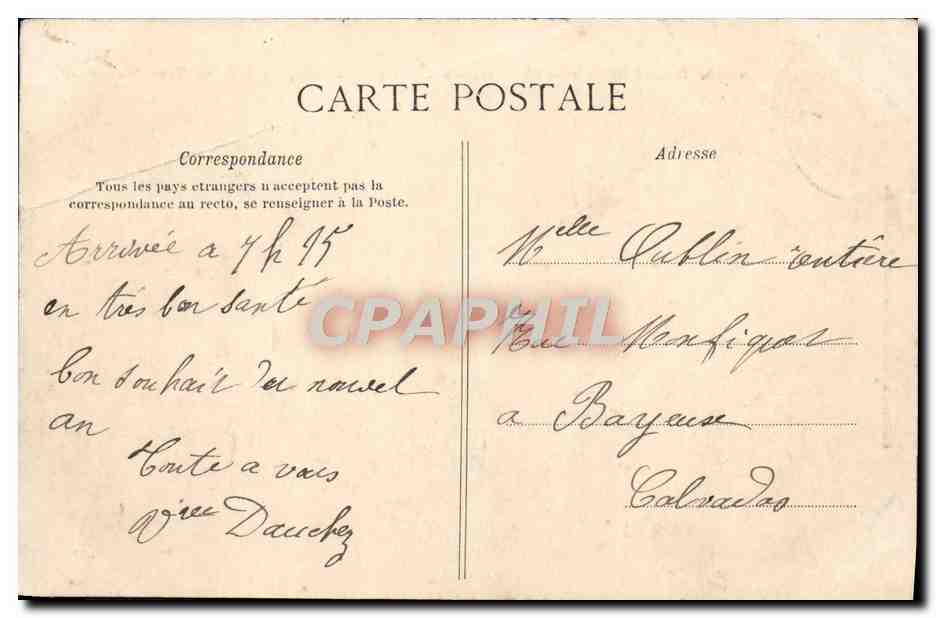 CARTE POSTALE
Correspondance
Tous les pays etrangers n acceptent pas la
correspondance au recto, se renseigner à la Poste.
Arrivée a 7 h 15
en très bon santé
bon souhait du nouvel
an
Toute a vous
Vve Dauchez
Adresse
Melle Oublin rentière
Rue Monfiquet
a Bayeux
Calvados
CPAPHIL